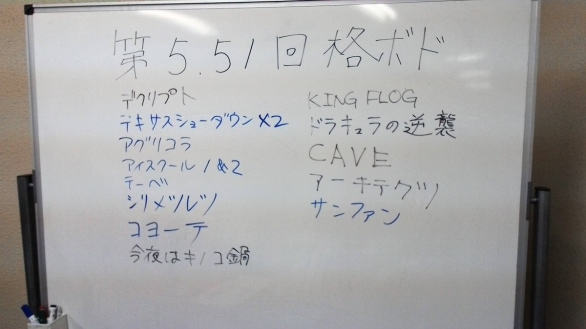 第5.51回格ボド
デクリプト
テキサスショーダウン×2
アグリコラ
アイスクール1&2
テーベ
シリメツレツ
コヨーテ
今夜はキノコ鍋
KING FLOG
ドラキュラの逆襲
CAVE
アーキテクツ
サンファン